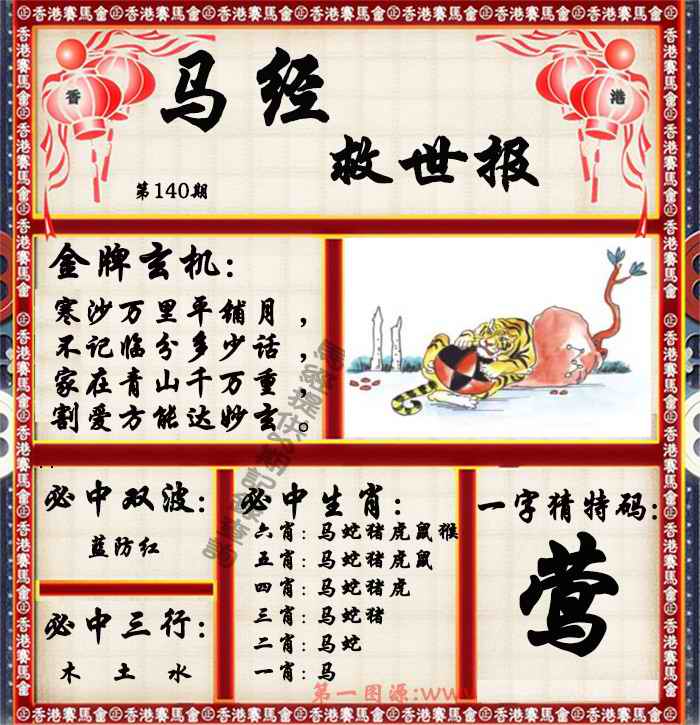 香港賽馬會
香
港
马经
救世报
第140期
金牌玄机：
寒沙万里平铺月，
不记临分多少话，
家在青山千万重，
割爱方能达妙玄。
必中双波：
蓝防红
必中三行：
木 土 水
必中生肖：
六肖：马蛇猪虎鼠猴
五肖：马蛇猪虎鼠
四肖：马蛇猪虎
三肖：马蛇猪
二肖：马蛇
一肖：马
一字猜特码：
莺
第一图源:www